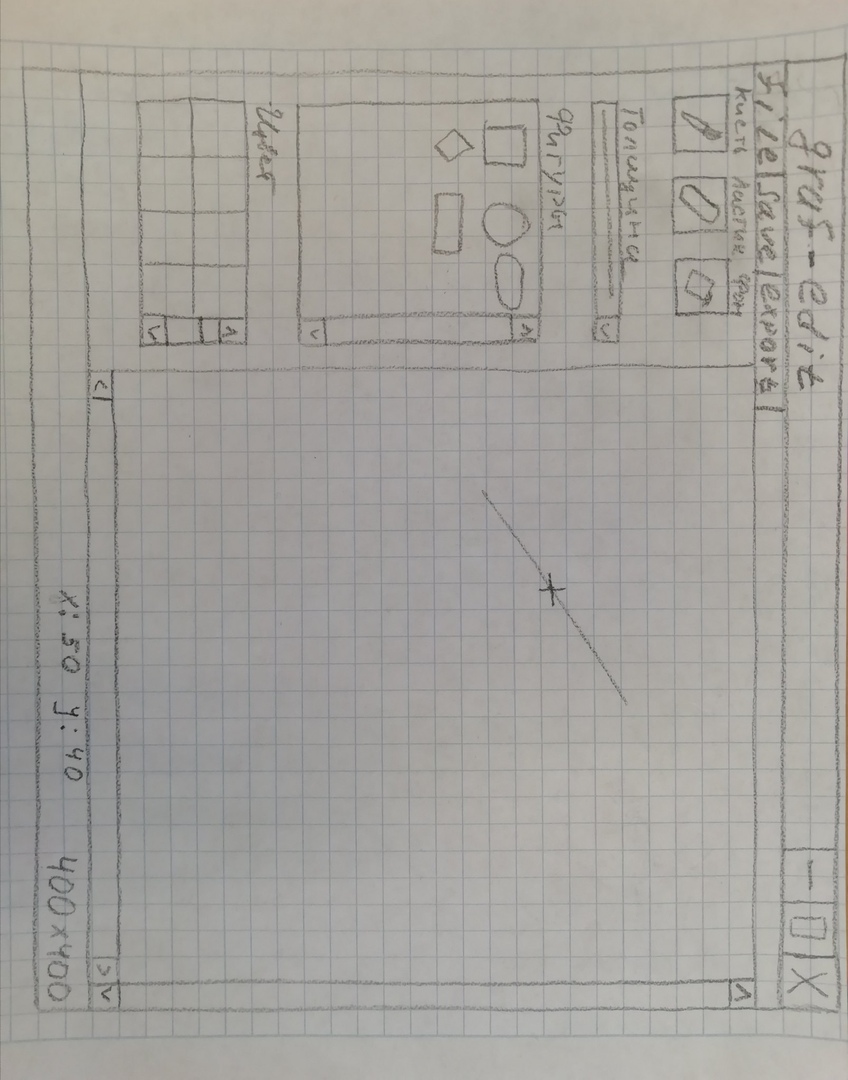 graf-edit
— □ X
file|save|export|
кисть ластик фон
Толщина
Фигуры
Цвет
x: 50 y: 40
400x400